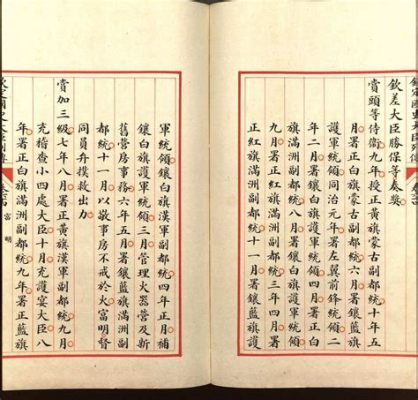 欽差大臣勝保等奏奬
賞頭等侍衛九年授正黃旗蒙古副都統十年五
月署正白旗蒙古副都統六月署鑲藍旗
護軍統領同治元年署左翼前鋒統領二
年二月署鑲白旗護軍統領四月署正白
旗滿洲副都統八月署鑲白旗護軍統領
九月署正紅旗滿洲副都統三年四月署
正紅旗滿洲副都統十一月署鑲藍旗護
軍統領鑲白旗漢軍副都統四年正月補
鑲白旗護軍統領三月管理火器營及新
舊營房事務六年五月署鑲藍旗滿洲副
都統十一月以敬事房不戒於火富明督
同員弁撲救出力
賞加三級七年八月署正黃旗漢軍副都統九月
充稽查小四處大臣十月充護宴大臣八
年署正白旗滿洲副都統九年署正藍旗
富明